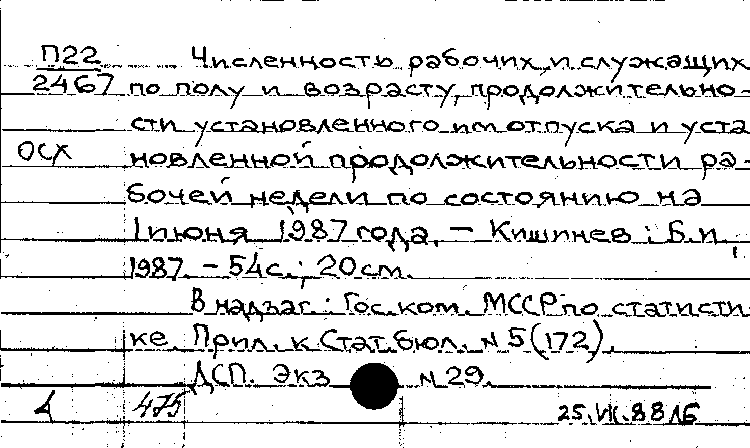 П22 Численность рабочих и служащих
2467 по полу и возрасту, продолжительно-
сти установленного им отпуска и уста
ОСХ новленной продолжительности ра-
бочей недели по состоянию на
1 июня 1987 года. – Кишинев : Б.и.,
1987. – 54с.; 20см.
В надзаг.: Гос.ком. МССР по статисти
ке. Прил. к Стат.бюл. N 5(172).
ДСП. Экз N 29.
475 25.VII.88 ЛБ